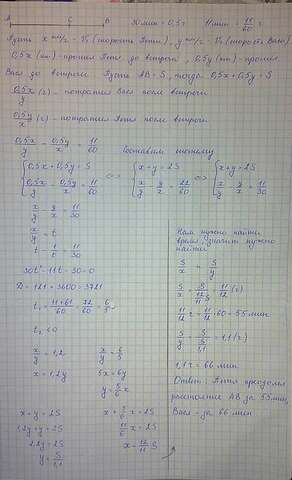 A C B 30мин = 0,5 г 11мин = 11/60 г
Пусть x км/г - V₁ (скорость Пети), y км/г - V₂ (скорость Васи)
0,5x (км) - прошел Петя до встречи, 0,5y (км) - прошел
Вася до встречи. Пусть AB = S, тогда 0,5x + 0,5y = S
0,5x/y (г) - потратил Вася после встречи
0,5y/x (г) - потратил Петя после встречи
0,5x/y - 0,5y/x = 11/60 Составим систему
{0,5x + 0,5y = S <=> {x + y = 2S <=> {x + y = 2S
{0,5x/y - 0,5y/x = 11/60 {x/y - y/x = 22/60 {x/y - y/x = 11/30
x/y - y/x = 11/30
x/y = t
t - 1/t = 11/30
30t² - 11t - 30 = 0
D = 121 + 3600 = 3721
t₁ = (11+61)/60 = 72/60 = 6/5
t₂ < 0
x/y = 1,2 x/y = 6/5
x = 1,2y 5x = 6y
y = 5/6 x
x + y = 2S x + 5/6 x = 2S
1,2y + y = 2S 11/6 x = 2S
2,2y = 2S x = 12/11 S
y = S/1,1
Нам нужно найти
время, значит нужно
найти
S/x и S/y
S/x = S/(12/11 S) = 11/12 (г)
11/12 г = 11/12 · 60 = 55 мин
S/y = S/(S/1,1) = 1,1 (г)
1,1 г = 66 мин
Ответ: Петя преодолел
расстояние AB за 55 мин,
Вася - за 66 мин